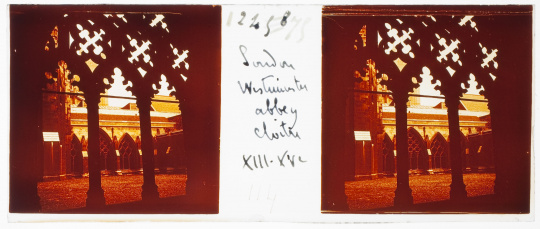 London
Westminster
abbey
cloitre
XIII-XVe